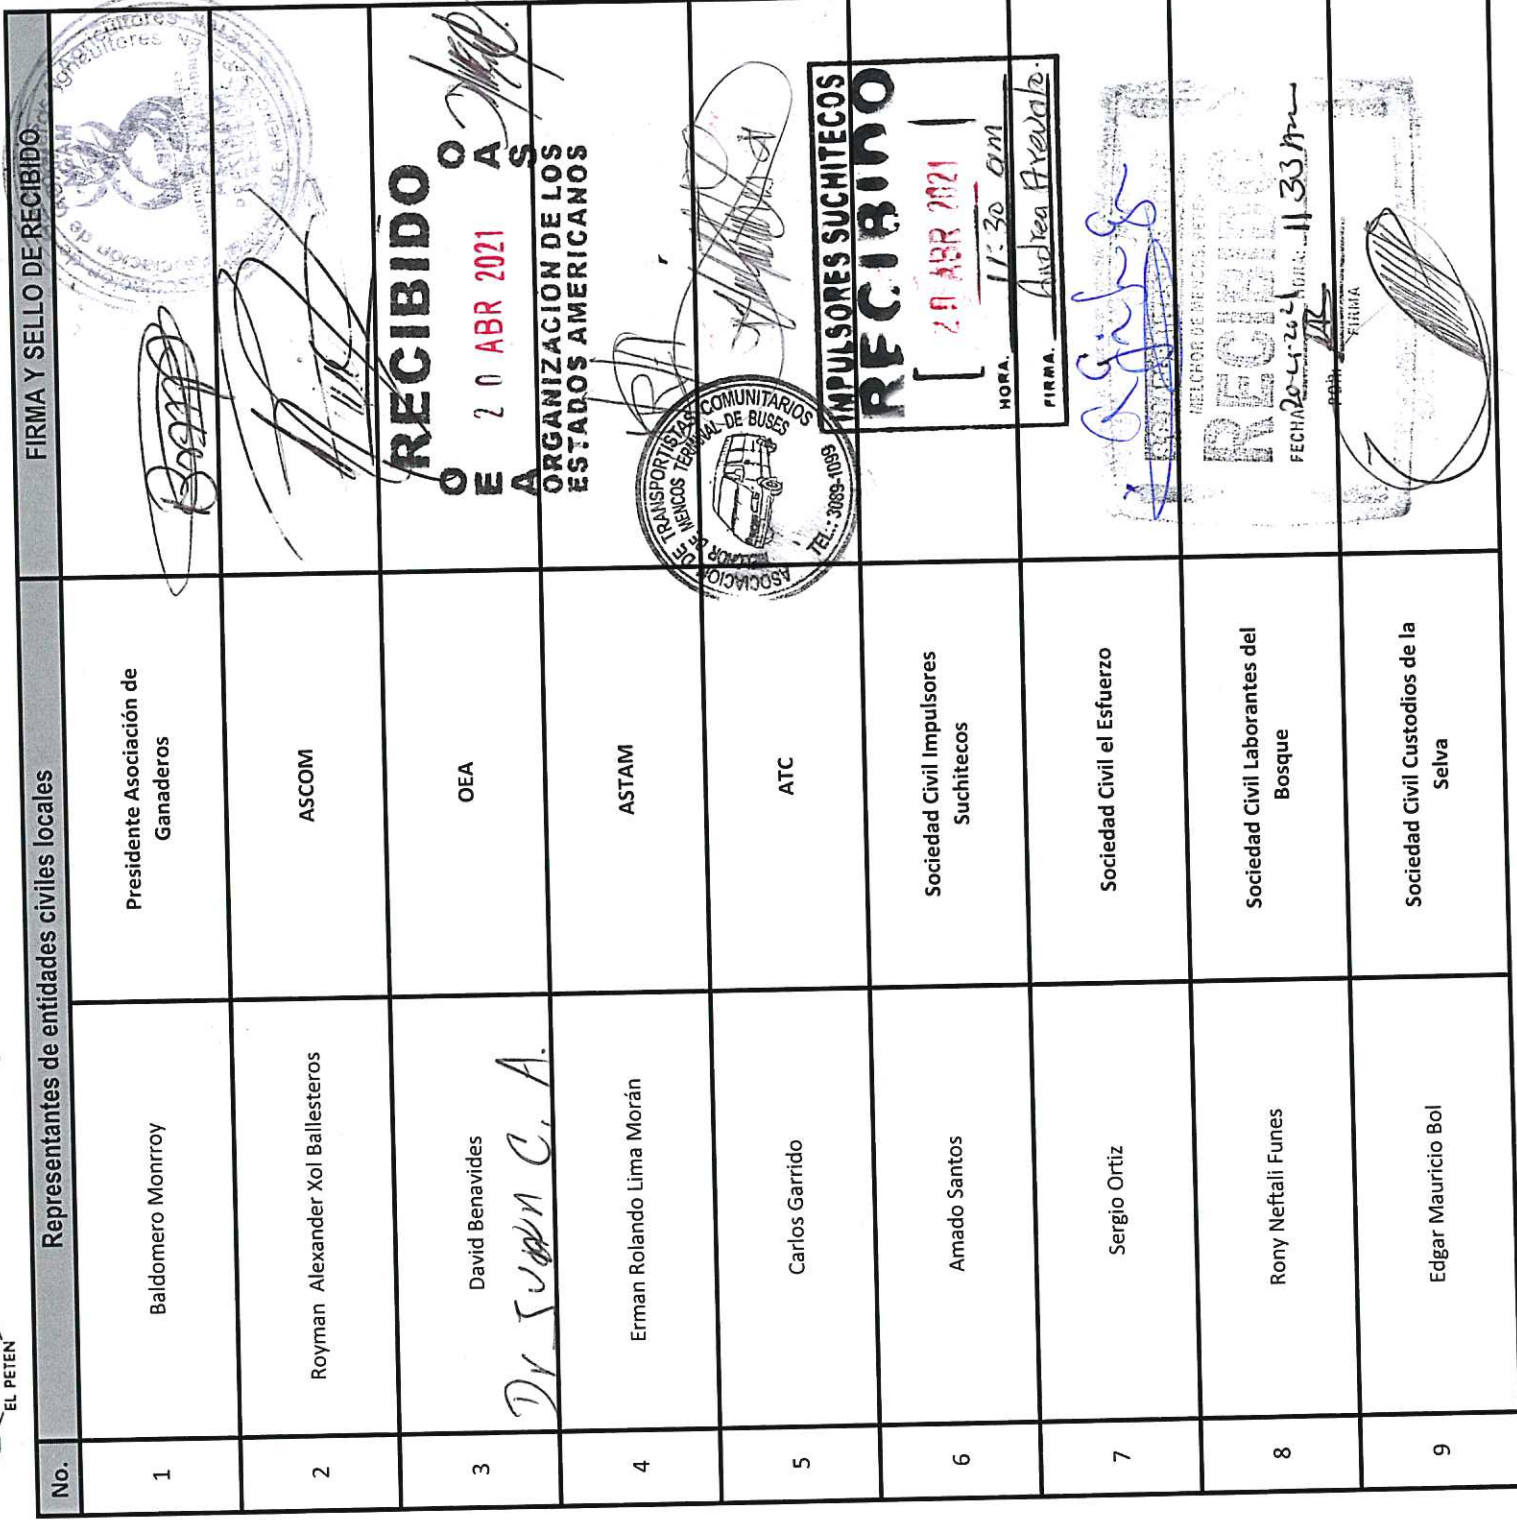 EL PETEN
No.
Representantes de entidades civiles locales
FIRMA Y SELLO DE RECIBIDO
1
Baldomero Monrroy
Presidente Asociación de
Ganaderos
2
Royman Alexander Xol Ballesteros
ASCOM
3
David Benavides
Dr Juan C. A.
OEA
RECIBIDO
O O
E 20 ABR 2021 A
A S
ORGANIZACION DE LOS
ESTADOS AMERICANOS
4
Erman Rolando Lima Morán
ASTAM
5
Carlos Garrido
ATC
ASOCIACION DE TRANSPORTISTAS COMUNITARIOS
MELCHOR DE MENCOS TERMINAL DE BUSES
TEL.: 3089-1099
6
Amado Santos
Sociedad Civil Impulsores
Suchitecos
IMPULSORES SUCHITECOS
RECIBIDO
20 ABR 2021
HORA. 11:30 am
FIRMA. Andrea Arevalo.
7
Sergio Ortiz
Sociedad Civil el Esfuerzo
8
Rony Neftali Funes
Sociedad Civil Laborantes del
Bosque
MELCHOR DE MENCOS, PETEN
RECIBIDO
FECHA 20-4-2021 HORA 11 33 Am
POR
FIRMA
9
Edgar Mauricio Bol
Sociedad Civil Custodios de la
Selva